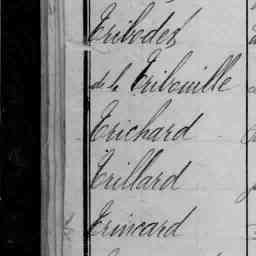 Tribodet
de la Tribouille
Trichard
Trillard
Trincard